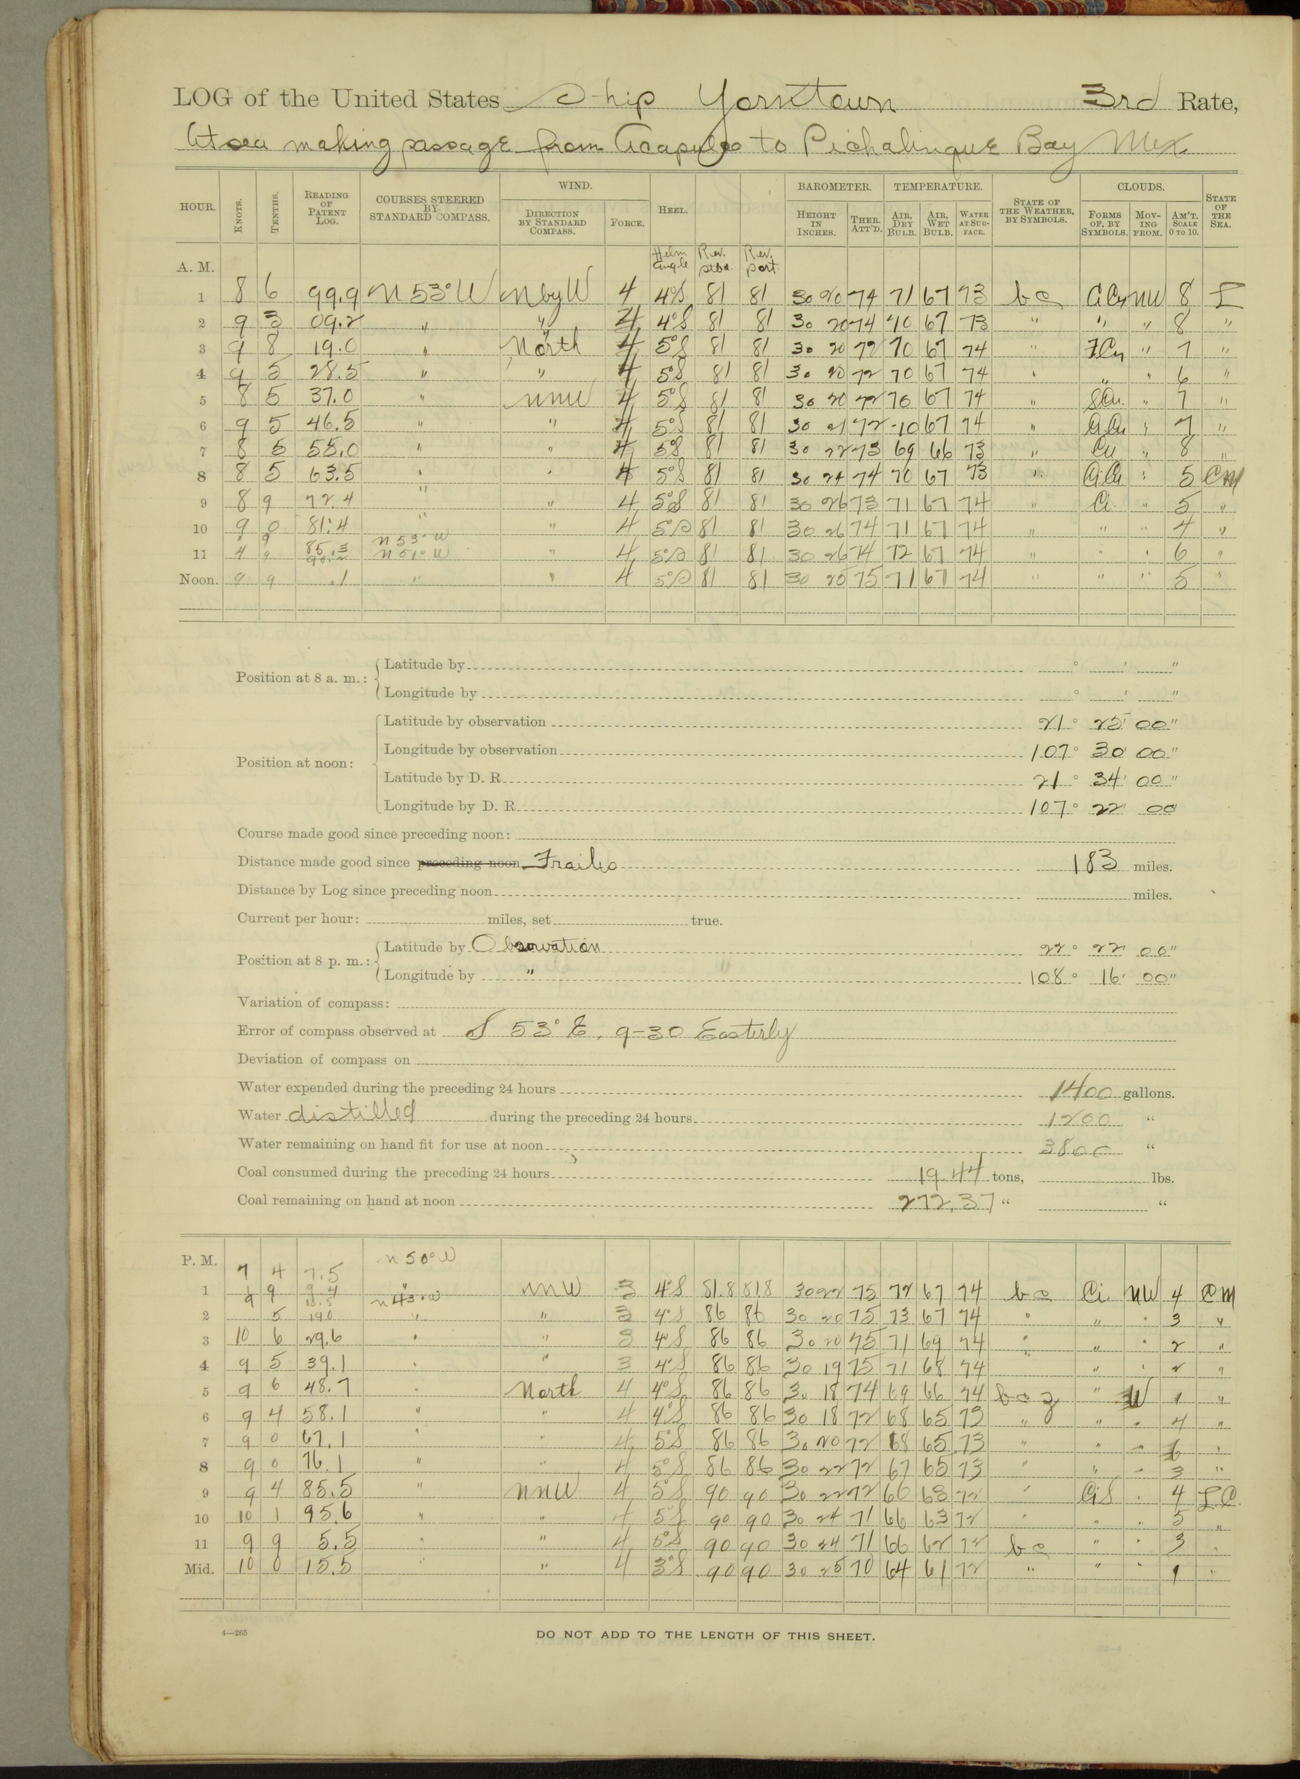 LOG of the United States Ship Yorktown 3rd Rate,
At sea making passage from Acapulco to Pichalinque Bay Mex
HOUR. KNOTS. TENTHS. READING OF PATENT LOG. COURSES STEERED BY STANDARD COMPASS. WIND. DIRECTION BY STANDARD COMPASS. FORCE. HEEL. BAROMETER. HEIGHT IN INCHES. THER. ATT'D. TEMPERATURE. AIR, DRY BULB. AIR, WET BULB. WATER AT SURFACE. STATE OF THE WEATHER, BY SYMBOLS. CLOUDS. FORMS OF, BY SYMBOLS. MOVING FROM. AM'T. SCALE 0 TO 10. STATE OF THE SEA.
A. M. Helm angle Rev. stbd. Rev. port
1 8 6 99.9 N 53° W N by W 4 4°S 81 81 30 20 74 71 67 73 bc Ci Cu NW 8 L
2 9 3 09.2 " " 4 4°S 81 81 30 20 74 70 67 73 " " " 8 "
3 9 8 19.0 " North 4 5°S 81 81 30 20 72 70 67 74 " " 7 "
4 9 5 28.5 " " 4 5°S 81 81 30 20 72 70 67 74 " " " 6 "
5 8 5 37.0 " NNW 4 5°S 81 81 30 20 72 70 67 74 " S Cu. " 7 "
6 9 5 46.5 " " 4 5°S 81 81 30 21 72 70 67 74 " " 7 "
7 8 5 55.0 " " 4 5°S 81 81 30 22 73 69 66 73 " Cu " 8 "
8 8 5 63.5 " " 4 5°S 81 81 30 24 74 70 67 73 " Ci Cu " 5 CM
9 8 9 72.4 " " 4 5°S 81 81 30 26 73 71 67 74 " Ci " 5 "
10 9 0 81.4 " " 4 5°S 81 81 30 26 74 71 67 74 " " " 4 "
N 53° W
11 4 9 85.3 N 51° W " 4 5°S 81 81 30 26 74 72 67 74 " " " 6 "
Noon. 9 9 .1 " " 4 5°S 81 81 30 25 75 71 67 74 " " " 5 "
Position at 8 a. m.: Latitude by ° ' "
Longitude by ° ' "
Position at noon: Latitude by observation 21° 25' 00"
Longitude by observation 107° 30' 00"
Latitude by D. R. 21° 34' 00"
Longitude by D. R. 107° 22' 00
Course made good since preceding noon:
Distance made good since preceding noon 183 miles.
Distance by Log since preceding noon miles.
Current per hour: miles, set true.
Position at 8 p. m.: Latitude by Observation 22° 22' 00"
Longitude by " 108° 16' 00"
Variation of compass:
Error of compass observed at S 53° E. 9-30 Easterly
Deviation of compass on
Water expended during the preceding 24 hours 1400 gallons.
Water distilled during the preceding 24 hours 1200 "
Water remaining on hand fit for use at noon 3800 "
Coal consumed during the preceding 24 hours 19.44 tons, lbs.
Coal remaining on hand at noon 272.37 " "
P. M. 7 4 7.5 N 50° W
1 9 9.4 " NNW 3 4°S 81.8 81.8 30 22 75 72 67 74 bc Ci. NW 4 CM
N 43° W
2 9 5 19.0 " " 3 4°S 86 86 30 20 75 73 67 74 " " " 3 "
3 10 6 29.6 " " 3 4°S 86 86 30 20 75 71 69 74 " " " 2 "
4 9 5 39.1 " " 3 4°S 86 86 30 19 75 71 68 74 " " 2 "
5 9 6 48.7 " North 4 4°S 86 86 30 18 74 69 66 74 bcz " W 1 "
6 9 4 58.1 " " 4 4°S 86 86 30 18 72 68 65 73 " " " 4 "
7 9 0 67.1 " " 4 5°S 86 86 30 20 72 68 65 73 " " " 6 "
8 9 0 76.1 " " 4 5°S 86 86 30 22 72 67 65 73 " " " 3 "
9 9 4 85.5 " NNW 4 5°S 90 90 30 22 72 66 63 72 " Ci S " 4 L.C.
10 10 1 95.6 " " 4 5°S 90 90 30 24 71 66 63 72 " " " 5 "
11 9 9 5.5 " " 4 5°S 90 90 30 24 71 66 62 72 bc " " 3 "
Mid. 10 0 15.5 " " 4 3°S 90 90 30 25 70 64 61 72 " " " 1 "
4—265
DO NOT ADD TO THE LENGTH OF THIS SHEET.